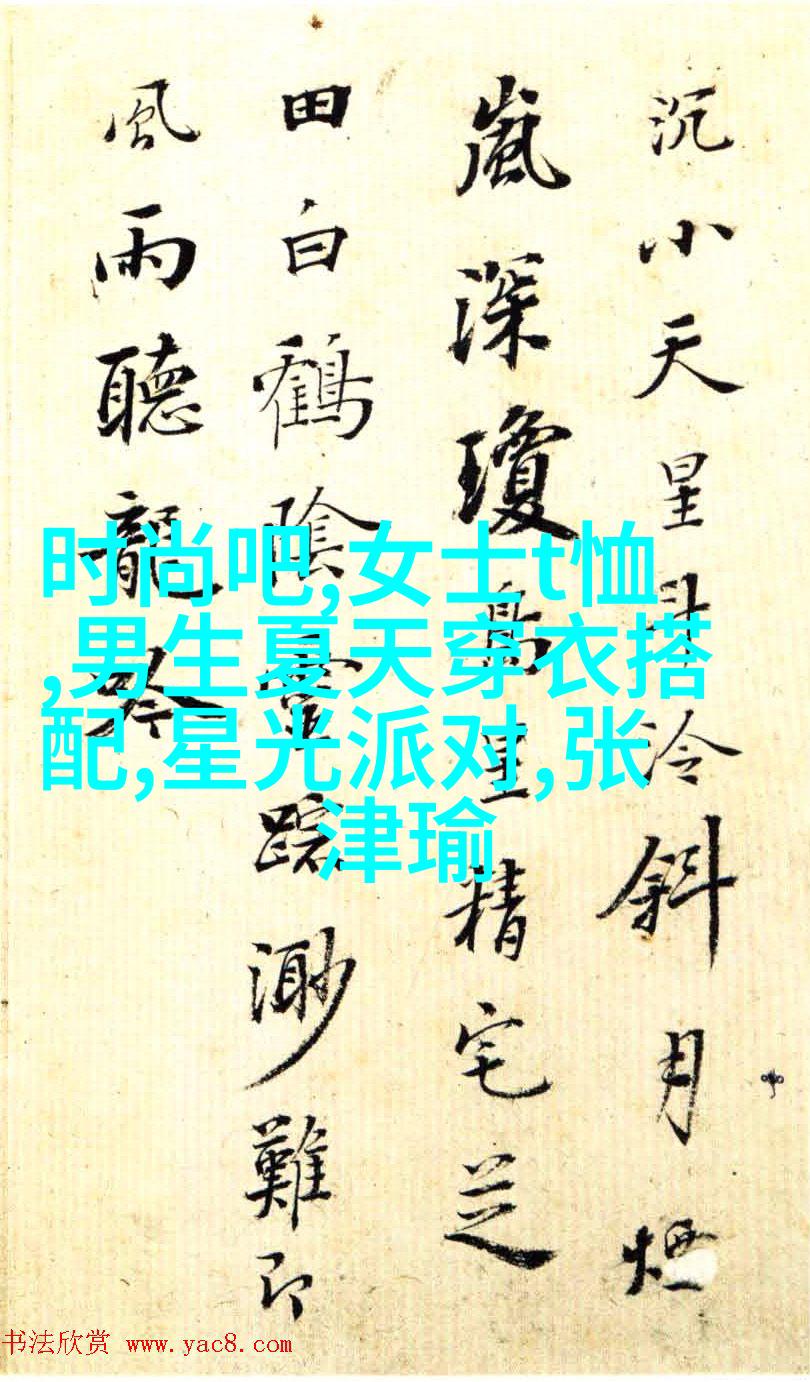 沉小天星斗冷斜月煙
嵐深瓊島里精宅芝
田白鶴陰靈蹤渺難即
風雨聽龍吟
时尚吧,女士t恤
,男生夏天穿衣搭
配,星光派对,张
津瑜
书法欣赏 www.yac8.com